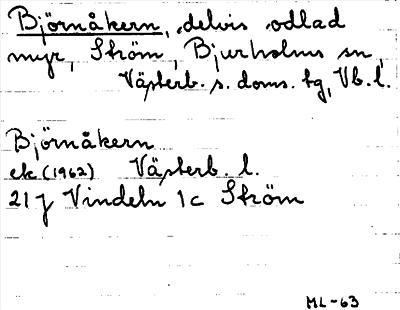 Björnåkern, delvis odlad
myr, Ström, Bjurholms sn,
Västerb. s. doms. tg, Vb. l.
Björnåkern
ek (1962) Västerb. l.
21 J Vindeln 1c Ström
ML-63